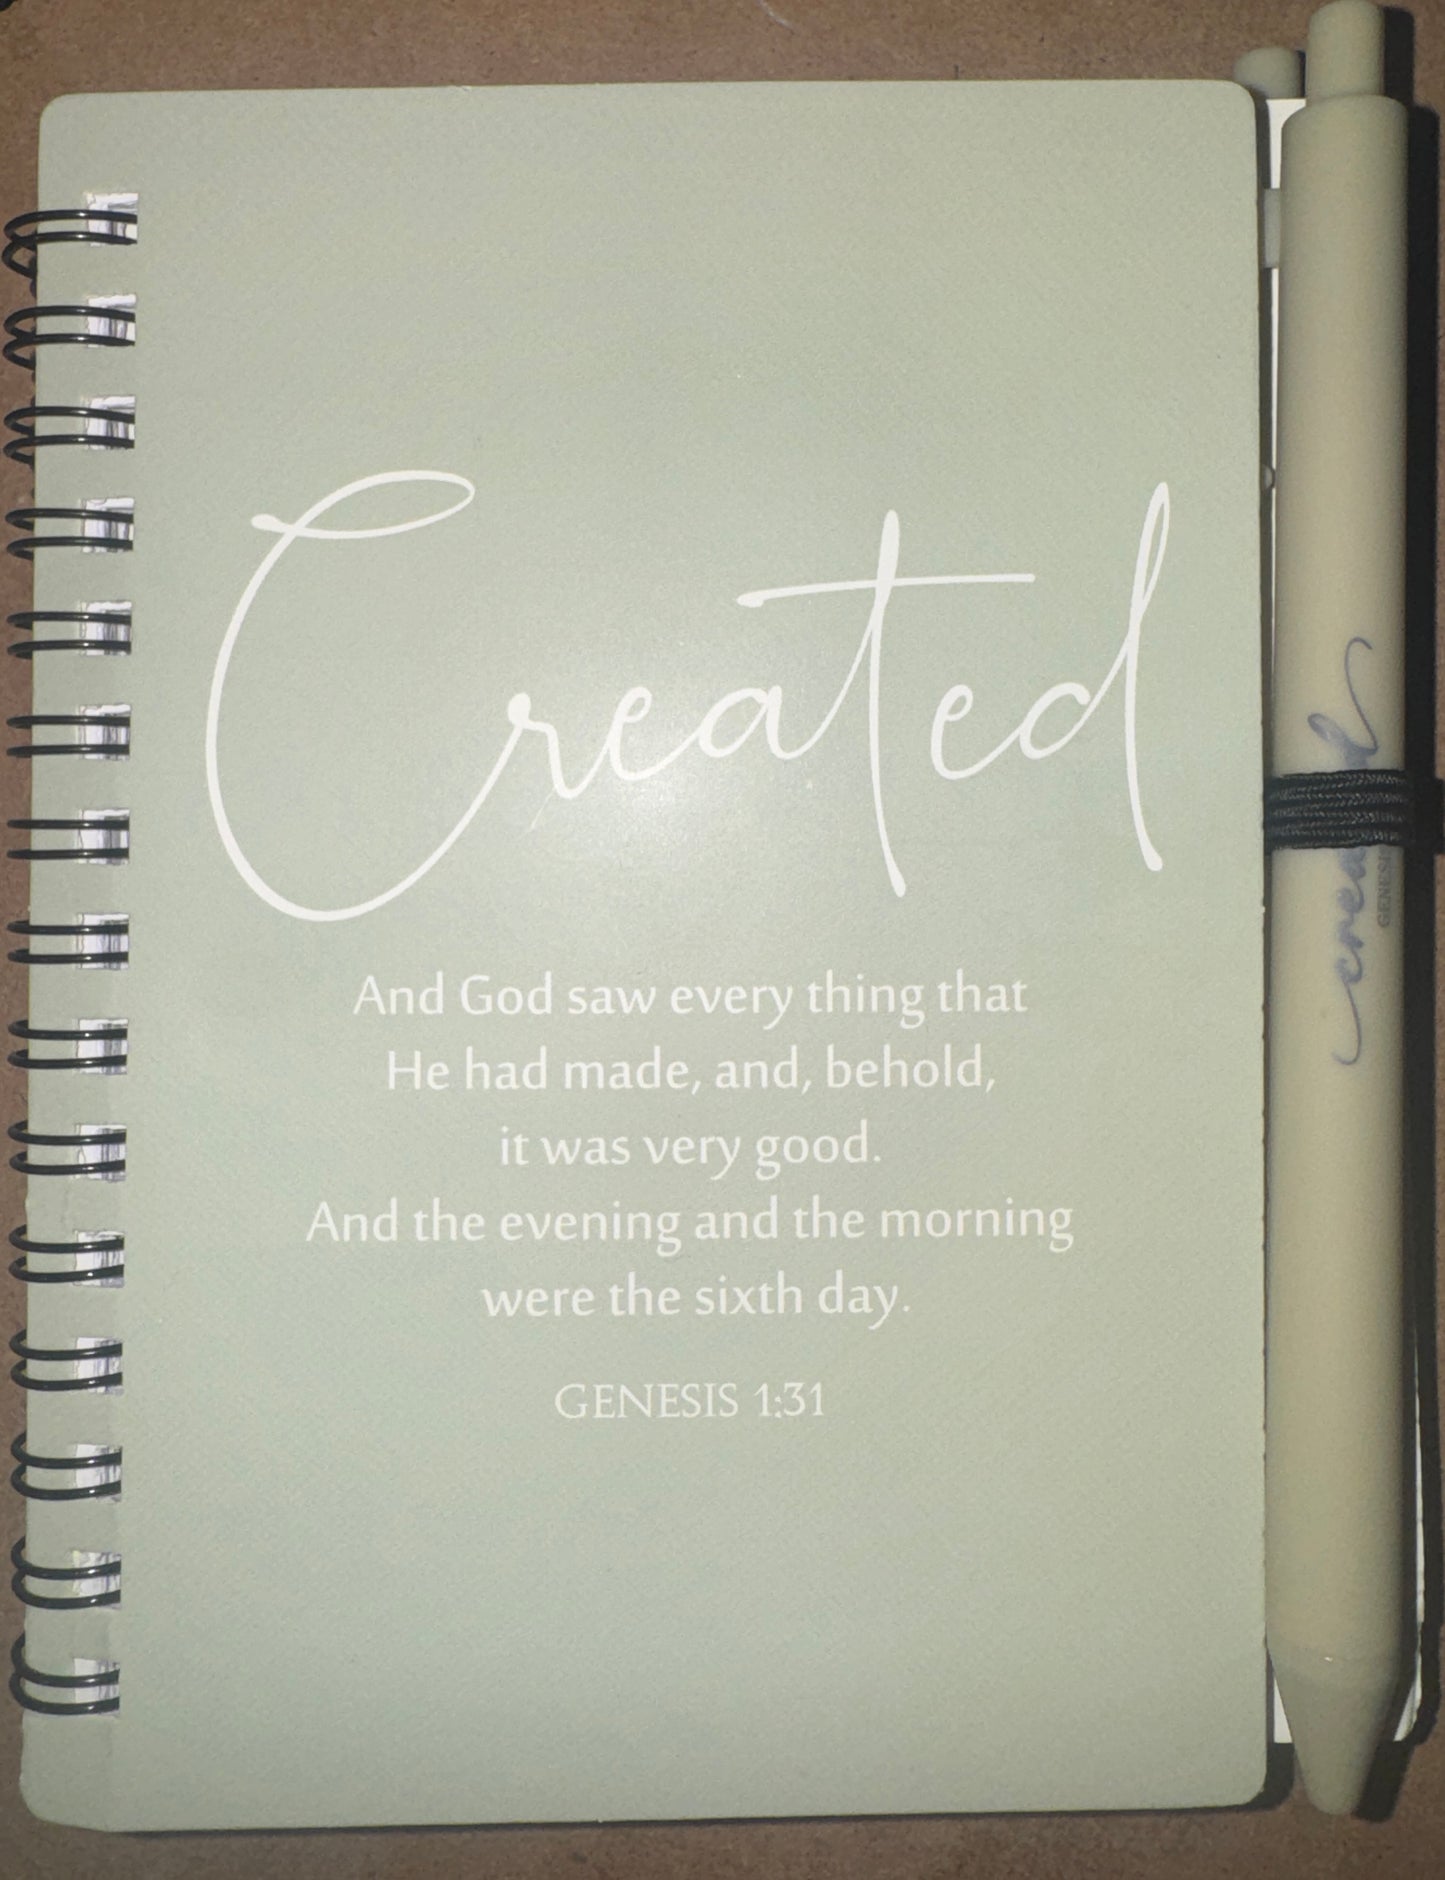 Created
And God saw every thing that
He had made, and, behold,
it was very good.
And the evening and the morning
were the sixth day.
GENESIS 1:31
created
GENESIS